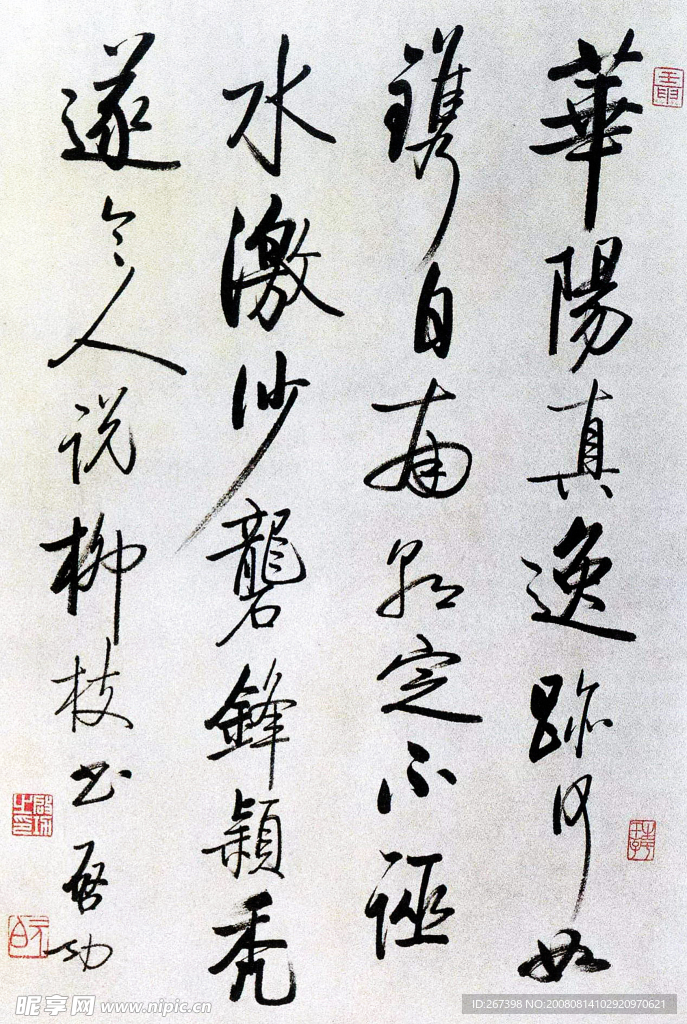 華陽真逸跡何如
鐫自南朝定不誣
水激沙礱鋒穎禿
遂令人說柳枝書 啓功
啟功之印
昵享网 www.nipic.cn
ID:267398 NO:20080814102920970621